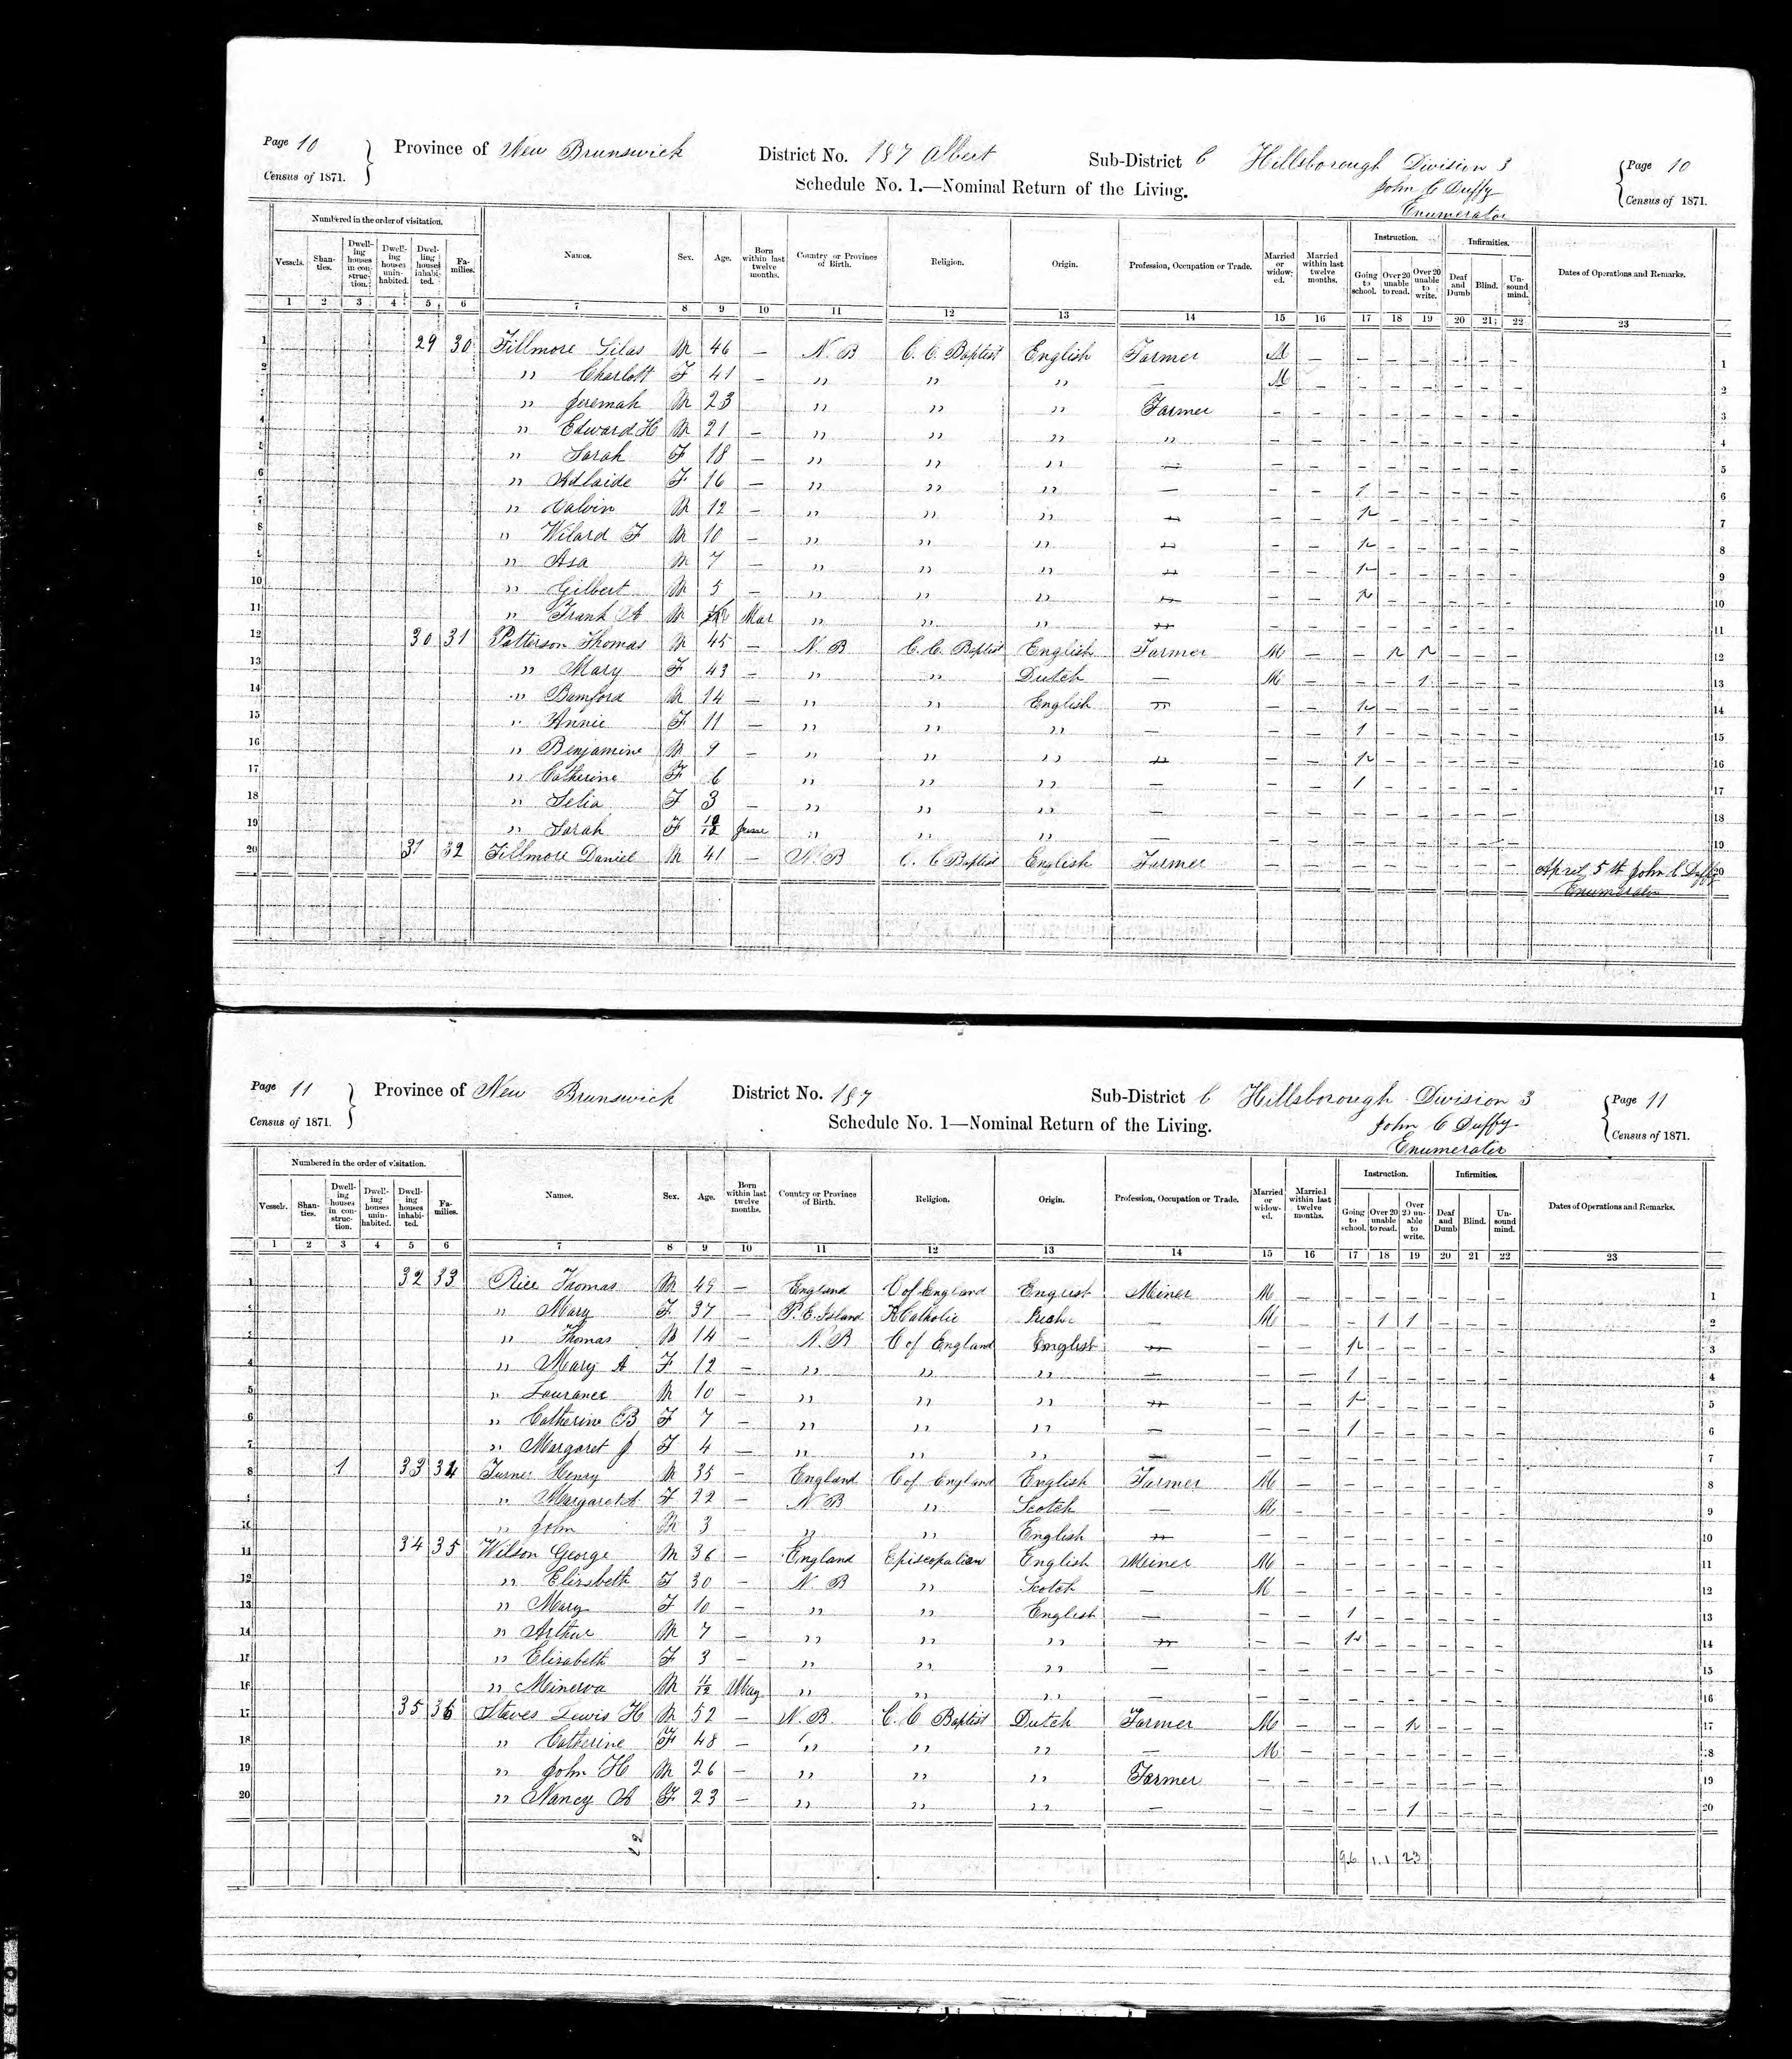 Page 10 Province of New Brunswick District No. 187 Albert Sub-District C Hillsborough Division 3 Page 10
Census of 1871. Schedule No. 1.—Nominal Return of the Living. John C Duffy Census of 1871.
Enumerator
Numbered in the order of visitation. Instruction. Infirmities.
Vessels. Shanties. Dwelling houses in construction. Dwelling houses uninhabited. Dwelling houses inhabited. Families. Names. Sex. Age. Born within last twelve months. Country or Province of Birth. Religion. Origin. Profession, Occupation or Trade. Married or widowed. Married within last twelve months. Going to school. Over 20 unable to read. Over 20 unable to write. Deaf and Dumb Blind. Unsound mind. Dates of Operations and Remarks.
1 2 3 4 5 6 7 8 9 10 11 12 13 14 15 16 17 18 19 20 21 22 23
1 29 30 Fillmore Silas M 46 — N. B C. C. Baptist English Farmer M — — — — — — — 1
2 " Charlott F 41 — " " " — M — — — — — — — 2
3 " Jeremah M 23 " " " Farmer — — — — — — — — 3
4 " Edward H M 21 — " " " " — — — — — — — — 4
5 " Sarah F 18 — " " " — — — — — — — — — 5
6 " Adlaide F 16 — " " " — — — 1 — — — — — 6
7 " Calvin M 12 — " " " — — — 1 — — — — — 7
8 " Wilard F M 10 — " " " — — — 1 — — — — — 8
9 " Asa M 7 — " " " — — — 1 — — — — — 9
10 " Gilbert M 5 — " " " — — — 1 — — — — — 10
11 " Frank A M Mar " " " — — — — — — — — — 11
12 30 31 Patterson Thomas M 45 — N. B C. C. Baptist English Farmer M — — 1 1 — — — 12
13 " Mary F 43 — " " Dutch — M — — — 1 — — — 13
14 " Bamford M 14 — " " English " — — 1 — — — — — 14
15 " Annie F 11 — " " " — — — 1 — — — — — 15
16 " Benjamine M 9 — " " " — — — 1 — — — — — 16
17 " Catherine F 6 " " " — — — 1 — — — — — 17
18 " Selia F 3 — " " " — — — — — — — — — 18
19 " Sarah F 10/12 June " " " — — — — — — — — — 19
20 31 32 Fillmore Daniel M 41 — N. B C. C Baptist English Farmer — — — — — — — — April 5th John C Duffy 20
Enumerator
Page 11 Province of New Brunswick District No. 187 Sub-District C Hillsborough Division 3 Page 11
Census of 1871. Schedule No. 1—Nominal Return of the Living. John C Duffy Census of 1871.
Enumerater
Numbered in the order of visitation. Instruction. Infirmities.
Vessels. Shanties. Dwelling houses in construction. Dwelling houses uninhabited. Dwelling houses inhabited. Families. Names. Sex. Age. Born within last twelve months. Country or Province of Birth. Religion. Origin. Profession, Occupation or Trade. Married or widowed. Married within last twelve months. Going to school. Over 20 unable to read. Over 20 unable to write. Deaf and Dumb Blind. Unsound mind. Dates of Operations and Remarks.
1 2 3 4 5 6 7 8 9 10 11 12 13 14 15 16 17 18 19 20 21 22 23
1 32 33 Rice Thomas M 49 — England C of England English Miner M — — — — — — — 1
2 " Mary F 37 — P. E. Island R Catholic Irish — M — — 1 1 — — — 2
3 " Thomas M 14 — N. B C of England English — — — 1 — — — — — 3
4 " Mary A F 12 — " " " — — — 1 — — — — — 4
5 " Laurance M 10 — " " " — — — 1 — — — — — 5
6 " Catherine B F 7 — " " " — — — 1 — — — — — 6
7 " Margaret J F 4 — " " " — — — — — — — — — 7
8 1 33 34 Turner Henry M 35 — England C of England English Farmer M — — — — — — — 8
9 " Margaret A F 22 — N B " Scotch — M — — — — — — — 9
10 " John M 3 — " " English — — — — — — — — — 10
11 34 35 Wilson George M 36 — England Episcopalian English Miner M — — — — — — — 11
12 " Elisbeth F 30 — N. B " Scotch — M — — — — — — — 12
13 " Mary F 10 — " " English — — — 1 — — — — — 13
14 " Arthur M 7 — " " " — — — 1 — — — — — 14
15 " Elisabeth F 3 — " " " — — — — — — — — — 15
16 " Minerva M 11/12 May " " " — — — — — — — — — 16
17 35 36 Steves Lewis H M 52 — N. B. C. C Baptist Dutch Farmer M — — — 1 — — — 17
18 " Catherine F 48 — " " " — M — — — — — — — 18
19 " John H M 26 — " " " Farmer — — — — — — — — 19
20 " Nancy A F 23 — " " " — — — — — 1 — — — 20
96 11 23